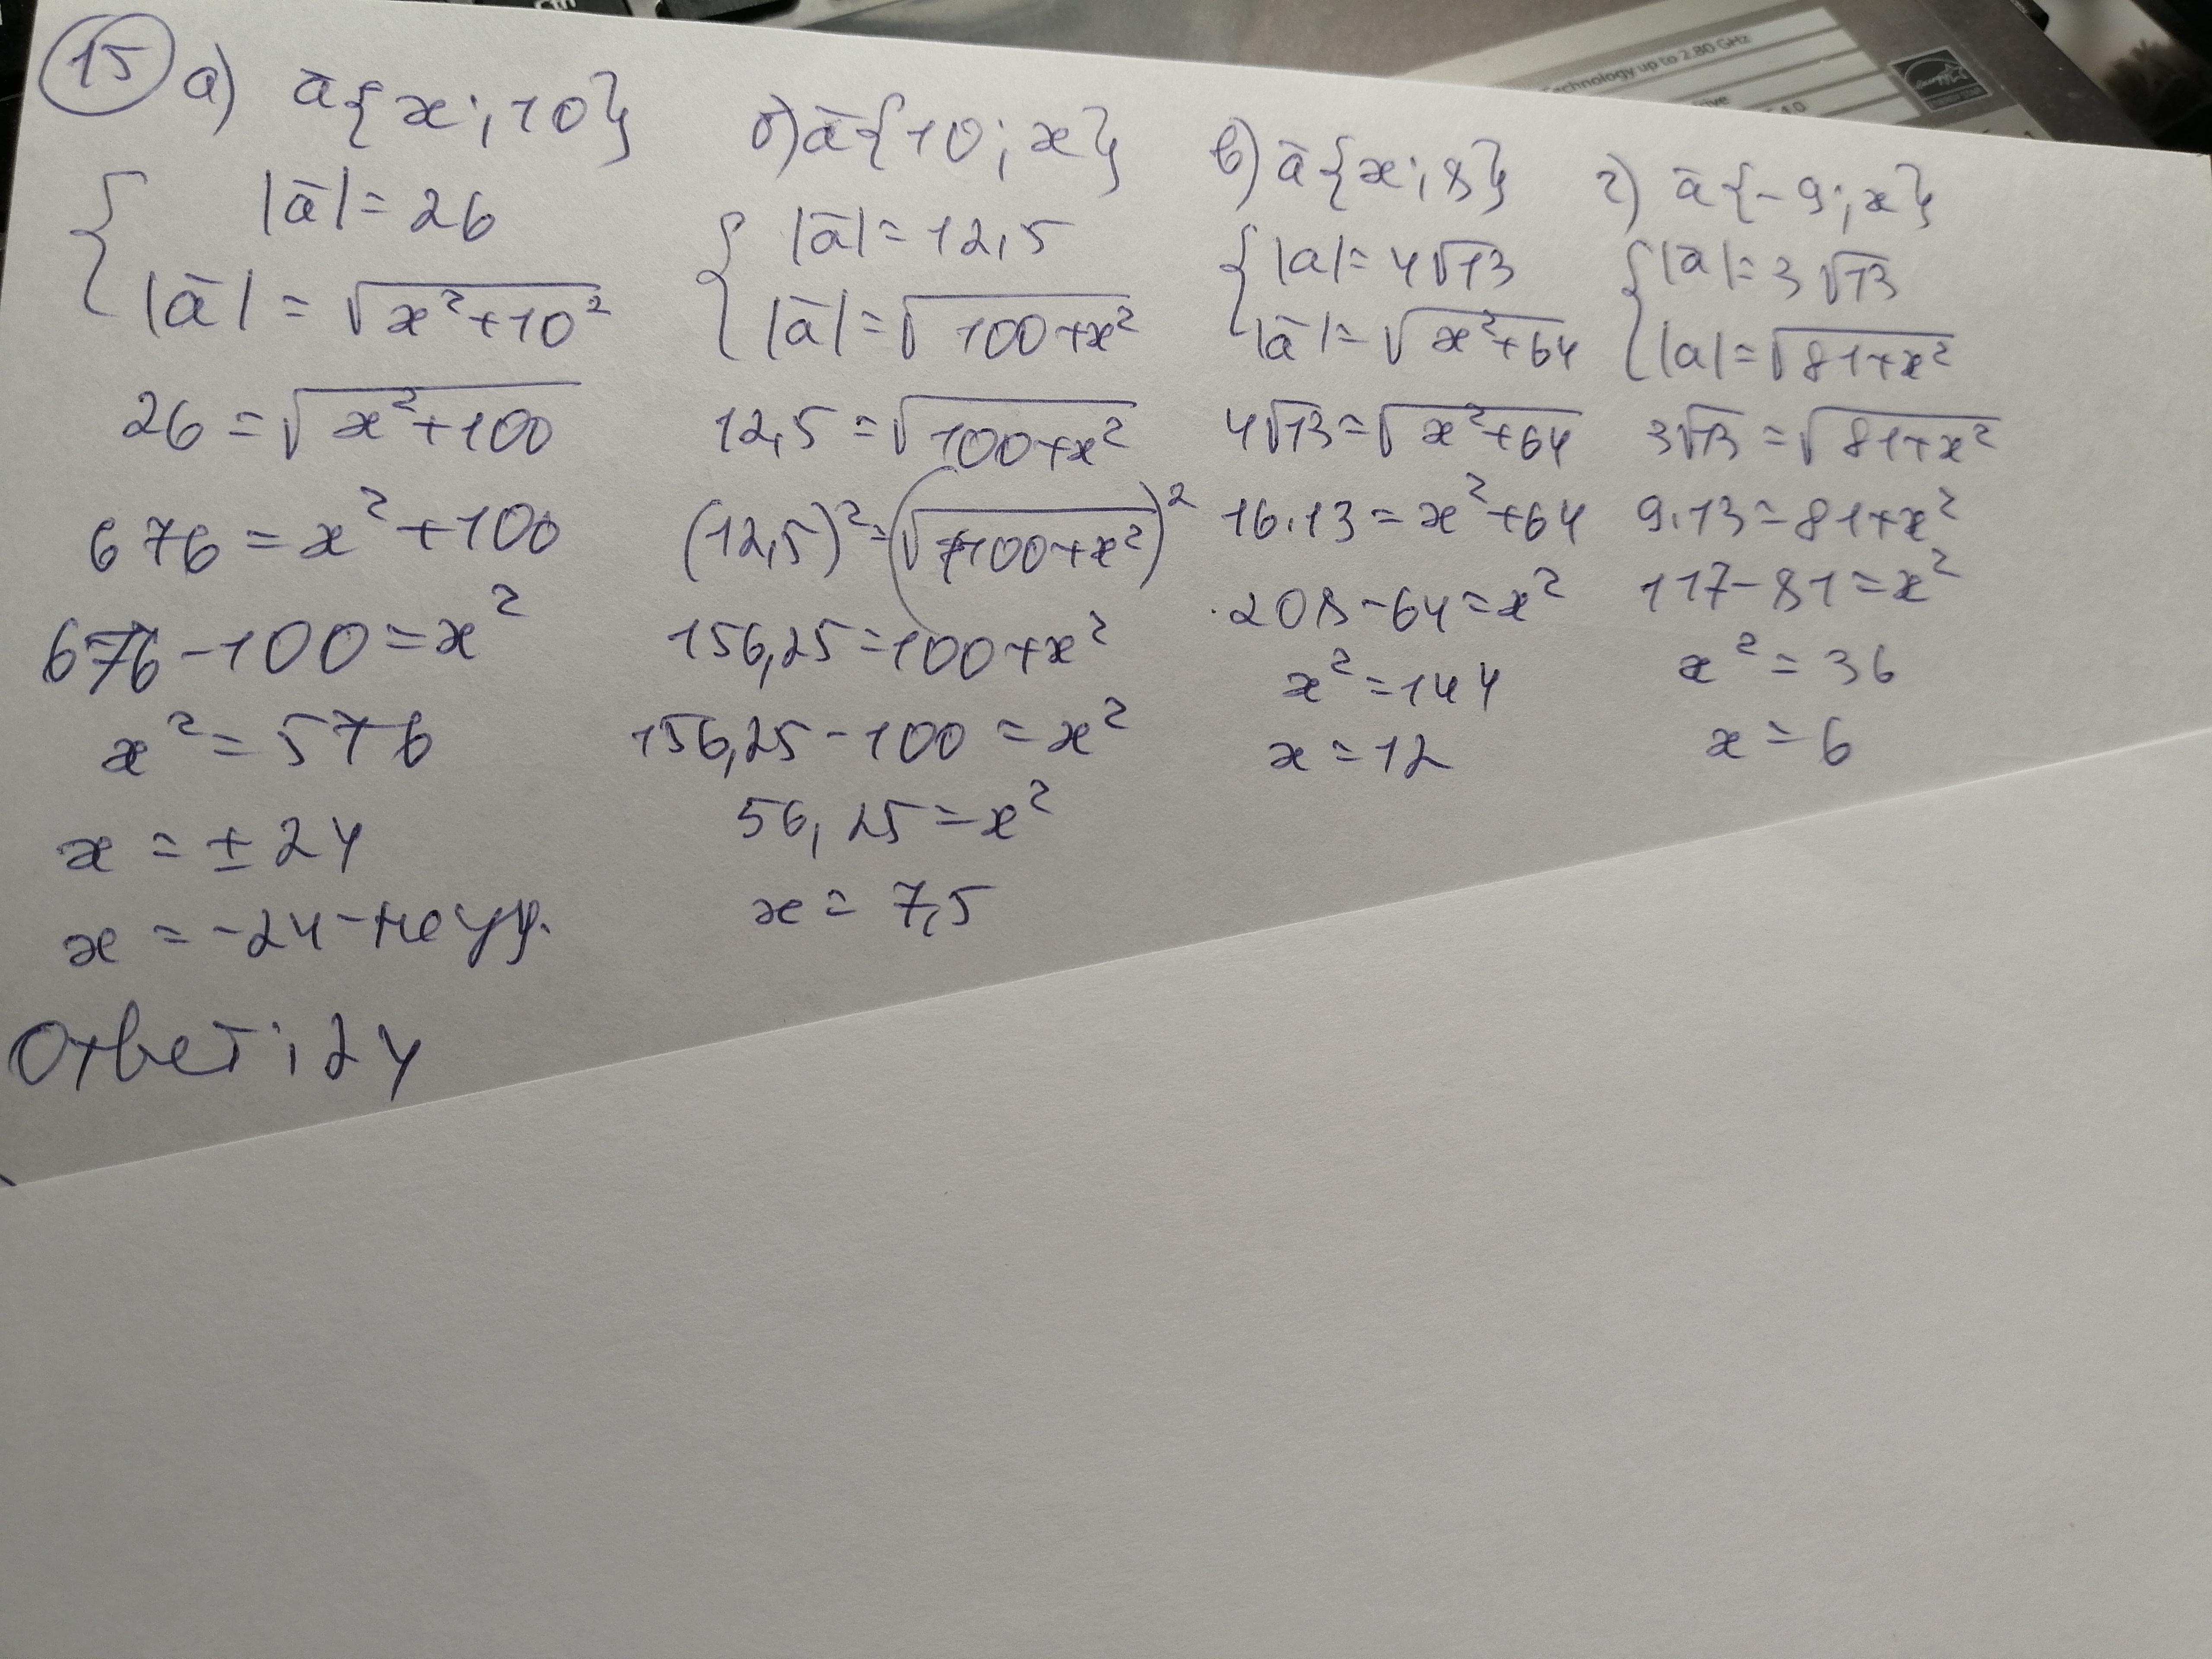 15 а) a̅{x; 10}
|a̅| = 26
|a̅| = √x²+10²
26 = √x²+100
676 = x²+100
676-100 = x²
x² = 576
x = ±24
x = -24 - не уд.
Ответ: 24
б) a̅{10; x}
|a̅| = 12,5
|a̅| = √100+x²
12,5 = √100+x²
(12,5)² = (√100+x²)²
156,25 = 100+x²
156,25-100 = x²
56,25 = x²
x = 7,5
в) a̅{x; 8}
|a| = 4√13
|a̅| = √x²+64
4√13 = √x²+64
16.13 = x²+64
208-64 = x²
x² = 144
x = 12
г) a̅{-9; x}
|a̅| = 3√13
|a| = √81+x²
3√13 = √81+x²
9.13 = 81+x²
117-81 = x²
x² = 36
x = 6
Technology up to 2.80 GHz